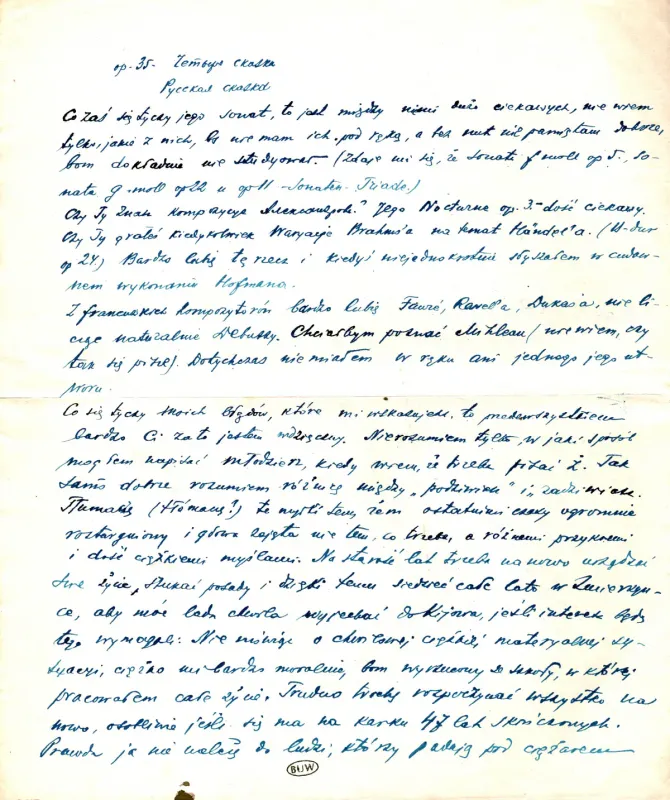 op. 35. Четыре сказки
Русская сказка
Co zaś się tyczy jego sonat, to jest między niemi dużo ciekawych, nie wiem
tylko, jakie z nich, bo nie mam ich pod ręką, a bez nut nie pamiętam dobrze,
bom dokładnie nie studyował. (Zdaje mi się, że sonata f moll op 5., so-
nata g-moll op 22 и op 11 - Sonaten-Triade.)
Czy Ty znasz kompozycye Александрова? Jego Nocturne op. 3.- dość ciekawy.
Czy Ty grałeś kiedykolwiek Waryacje Brahms'a na temat Händel'a. (B-dur
op 24.) Bardzo lubię tę rzecz i kiedyś niejednokrotnie słyszałem w cudow-
nem wykonaniu Hofmana.
Z francuskich kompozytorów bardzo lubię Fauré, Ravel'a, Dukas'a, nie li-
cząc naturalnie Debussy. Chciałbym poznać Mihleau (nie wiem, czy
tak się pisze). Dotychczas nie miałem w ręku ani jednego jego ut-
woru.
Co się tyczy moich błędów, które mi wskazujesz, to przedewszystkiem
bardzo Ci za to jestem wdzięczny. Nierozumiem tylko, w jaki sposób
mogłem napisać młodzierz, kiedy wiem, że trzeba pisać ż. Tak
samo dobrze rozumiem różnicę między „podziwiać" i „zadziwiać".
Tłumaczę (tłómaczę?) to myślę tem, żem ostatniemi czasy ogromnie
roztargniony i głowa zajęta nie tem, co trzeba, a różnemi przykremi
i dość ciężkiemi myślami. Na starość lat trzeba na nowo urządzać
swe życie, szukać posady i dzięki temu siedzieć całe lato w Żmierzyn-
ce, aby móc lada chwila wyjechać do Kijowa, jeśli interesa będą
tego wymagali. Nie mówiąc o chwilowej ciężkiej materyalnej sy-
tuacji, ciężko mi bardzo moralnie, bom wyrzucony ze szkoły, w której
pracowałem całe życie. Trudno trochę rozpoczynać wszystko na
nowo, osobliwie jeśli się ma na karku 47 lat skończonych.
Prawda ja nie należę do ludzi, którzy padają pod ciężarem
BUW